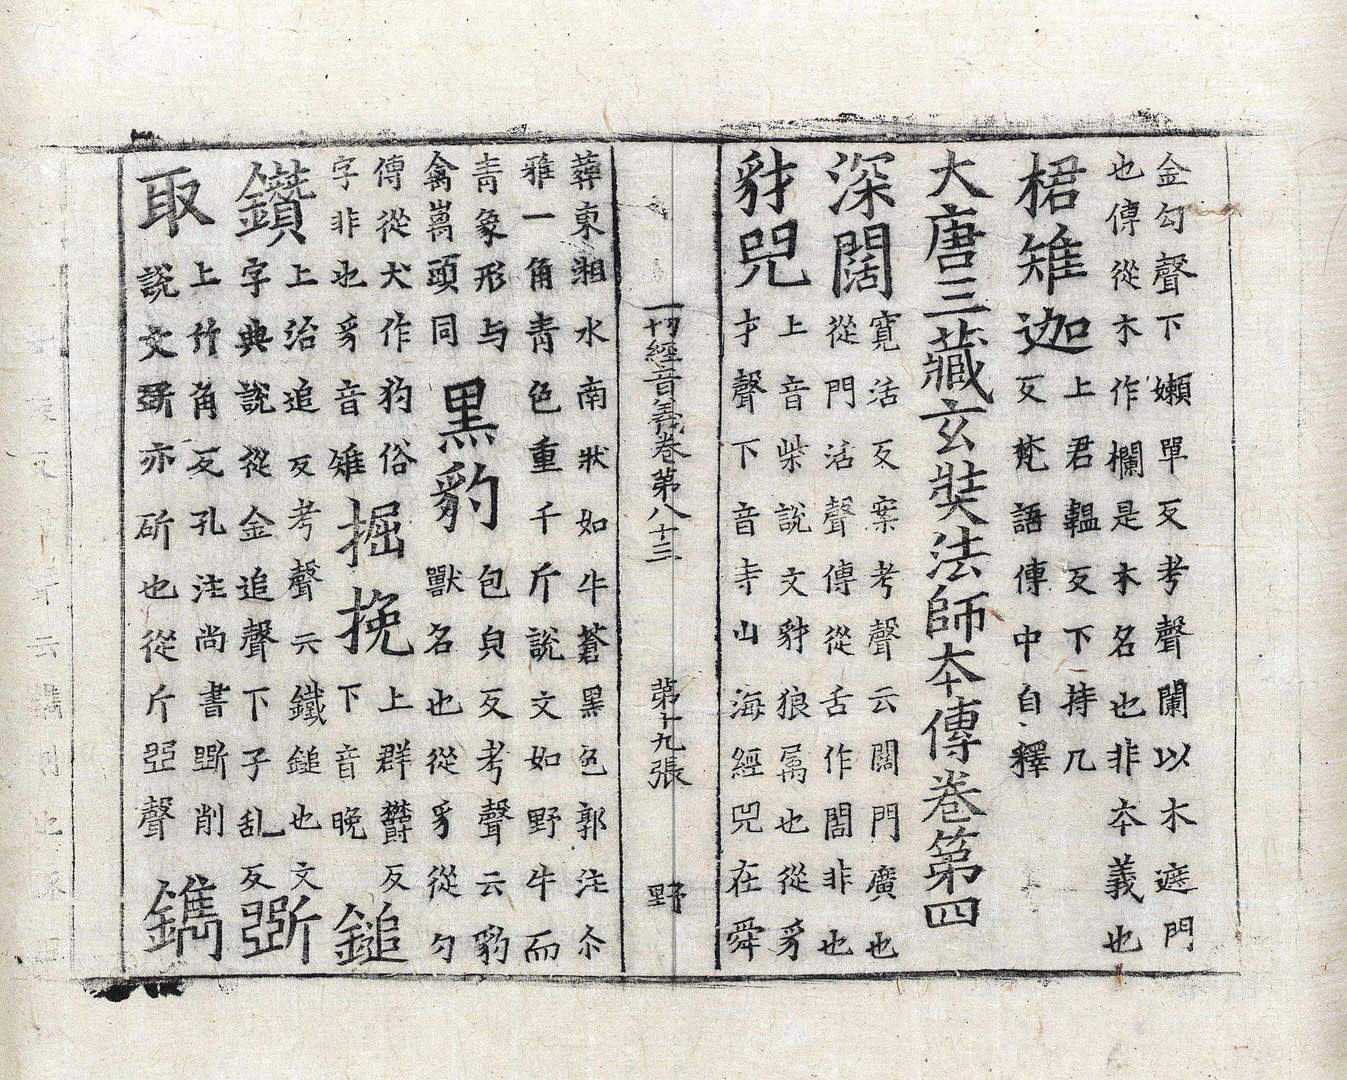 金勾聲下嬾單反考聲闌以木遮門
也傳從木作欄是木名也非本義也
桾雉迦
上君韞反下持几
反梵語傳中自釋
大唐三藏玄奘法師本傳卷第四
深闊
寬活反案考聲云闊門廣也
從門活聲傳從舌作䦚非也
豺兕
上音柴說文豺狼属也從豸
才聲下音寺山海經兕在舜
一切經音義卷第八十三 第十九張 野
葬東湘水南狀如牛蒼黑色郭注尒
雅一角青色重千斤說文如野牛而
青象形与
禽离頭同
黑豹
包皃反考聲云豹
獸名也從豸從勺
傳從犬作犳俗
字非也豸音雉
掘挽
上群欝反
下音晚
鎚
鑽
上治追反考聲云鐵鎚也文
字典說從金追聲下子乱反
斵
取
上竹角反孔注尚書斵削
說文斵亦斫也從斤亞聲
鐫